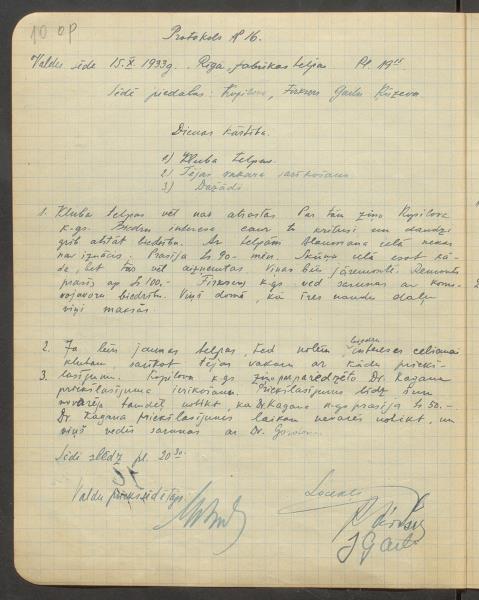 10 op
Protokols № 16.
Valdes sēde 15.X. 1933g. Rīgā fabrikas telpās Pl. 19 15
Sēdē piedalas: Kopilovs, Firksers Garbs Kūzevs
Dienas kārtība.
1) Kluba telpas.
2) Tējas vakara sarīkošana
3) Dažādi
1. Kluba telpas vēl nav atrastas Par tām ziņo Kopilovs
k-gs. Biedru interese caur to krītusi un daudzi
grib atstāt biedrību. Ar telpām ielā nekas
nav iznācis. Prasīja Ls 90.- mēn. Skūņu ielā esot kā-
das, bet tās vēl aizņemtas Viņas būs jāremontē. Remonts
prasīs ap Ls 100,- Firksers k-gs ved sarunas ar
biedrību. Viņš domā, ka īres naudu daļu
viņi maksās.
2. Ja būs jaunas telpas, tad nolēm biedru intereses celšanai
klubam sarīkot tējas vakaru ar kādu priekš-
3. lasījumu. Kopilovs k-gs ziņo par paredzēto Dr. Kagana
priekšlasījuma ierīkošanu. Priekšlasījums līdz šim
nevarēs tamdēļ notikt, ka Dr. Kagans k-gs prasīja Ls 50.-
Dr. Kagana priekšlasījums laikam nevarēs notikt, un
viņš vedīs sarunas ar Dr.
Sēdi slēdz pl. 20 30.
Valdes priekšsēdētājs
Locekļi
J Garbs